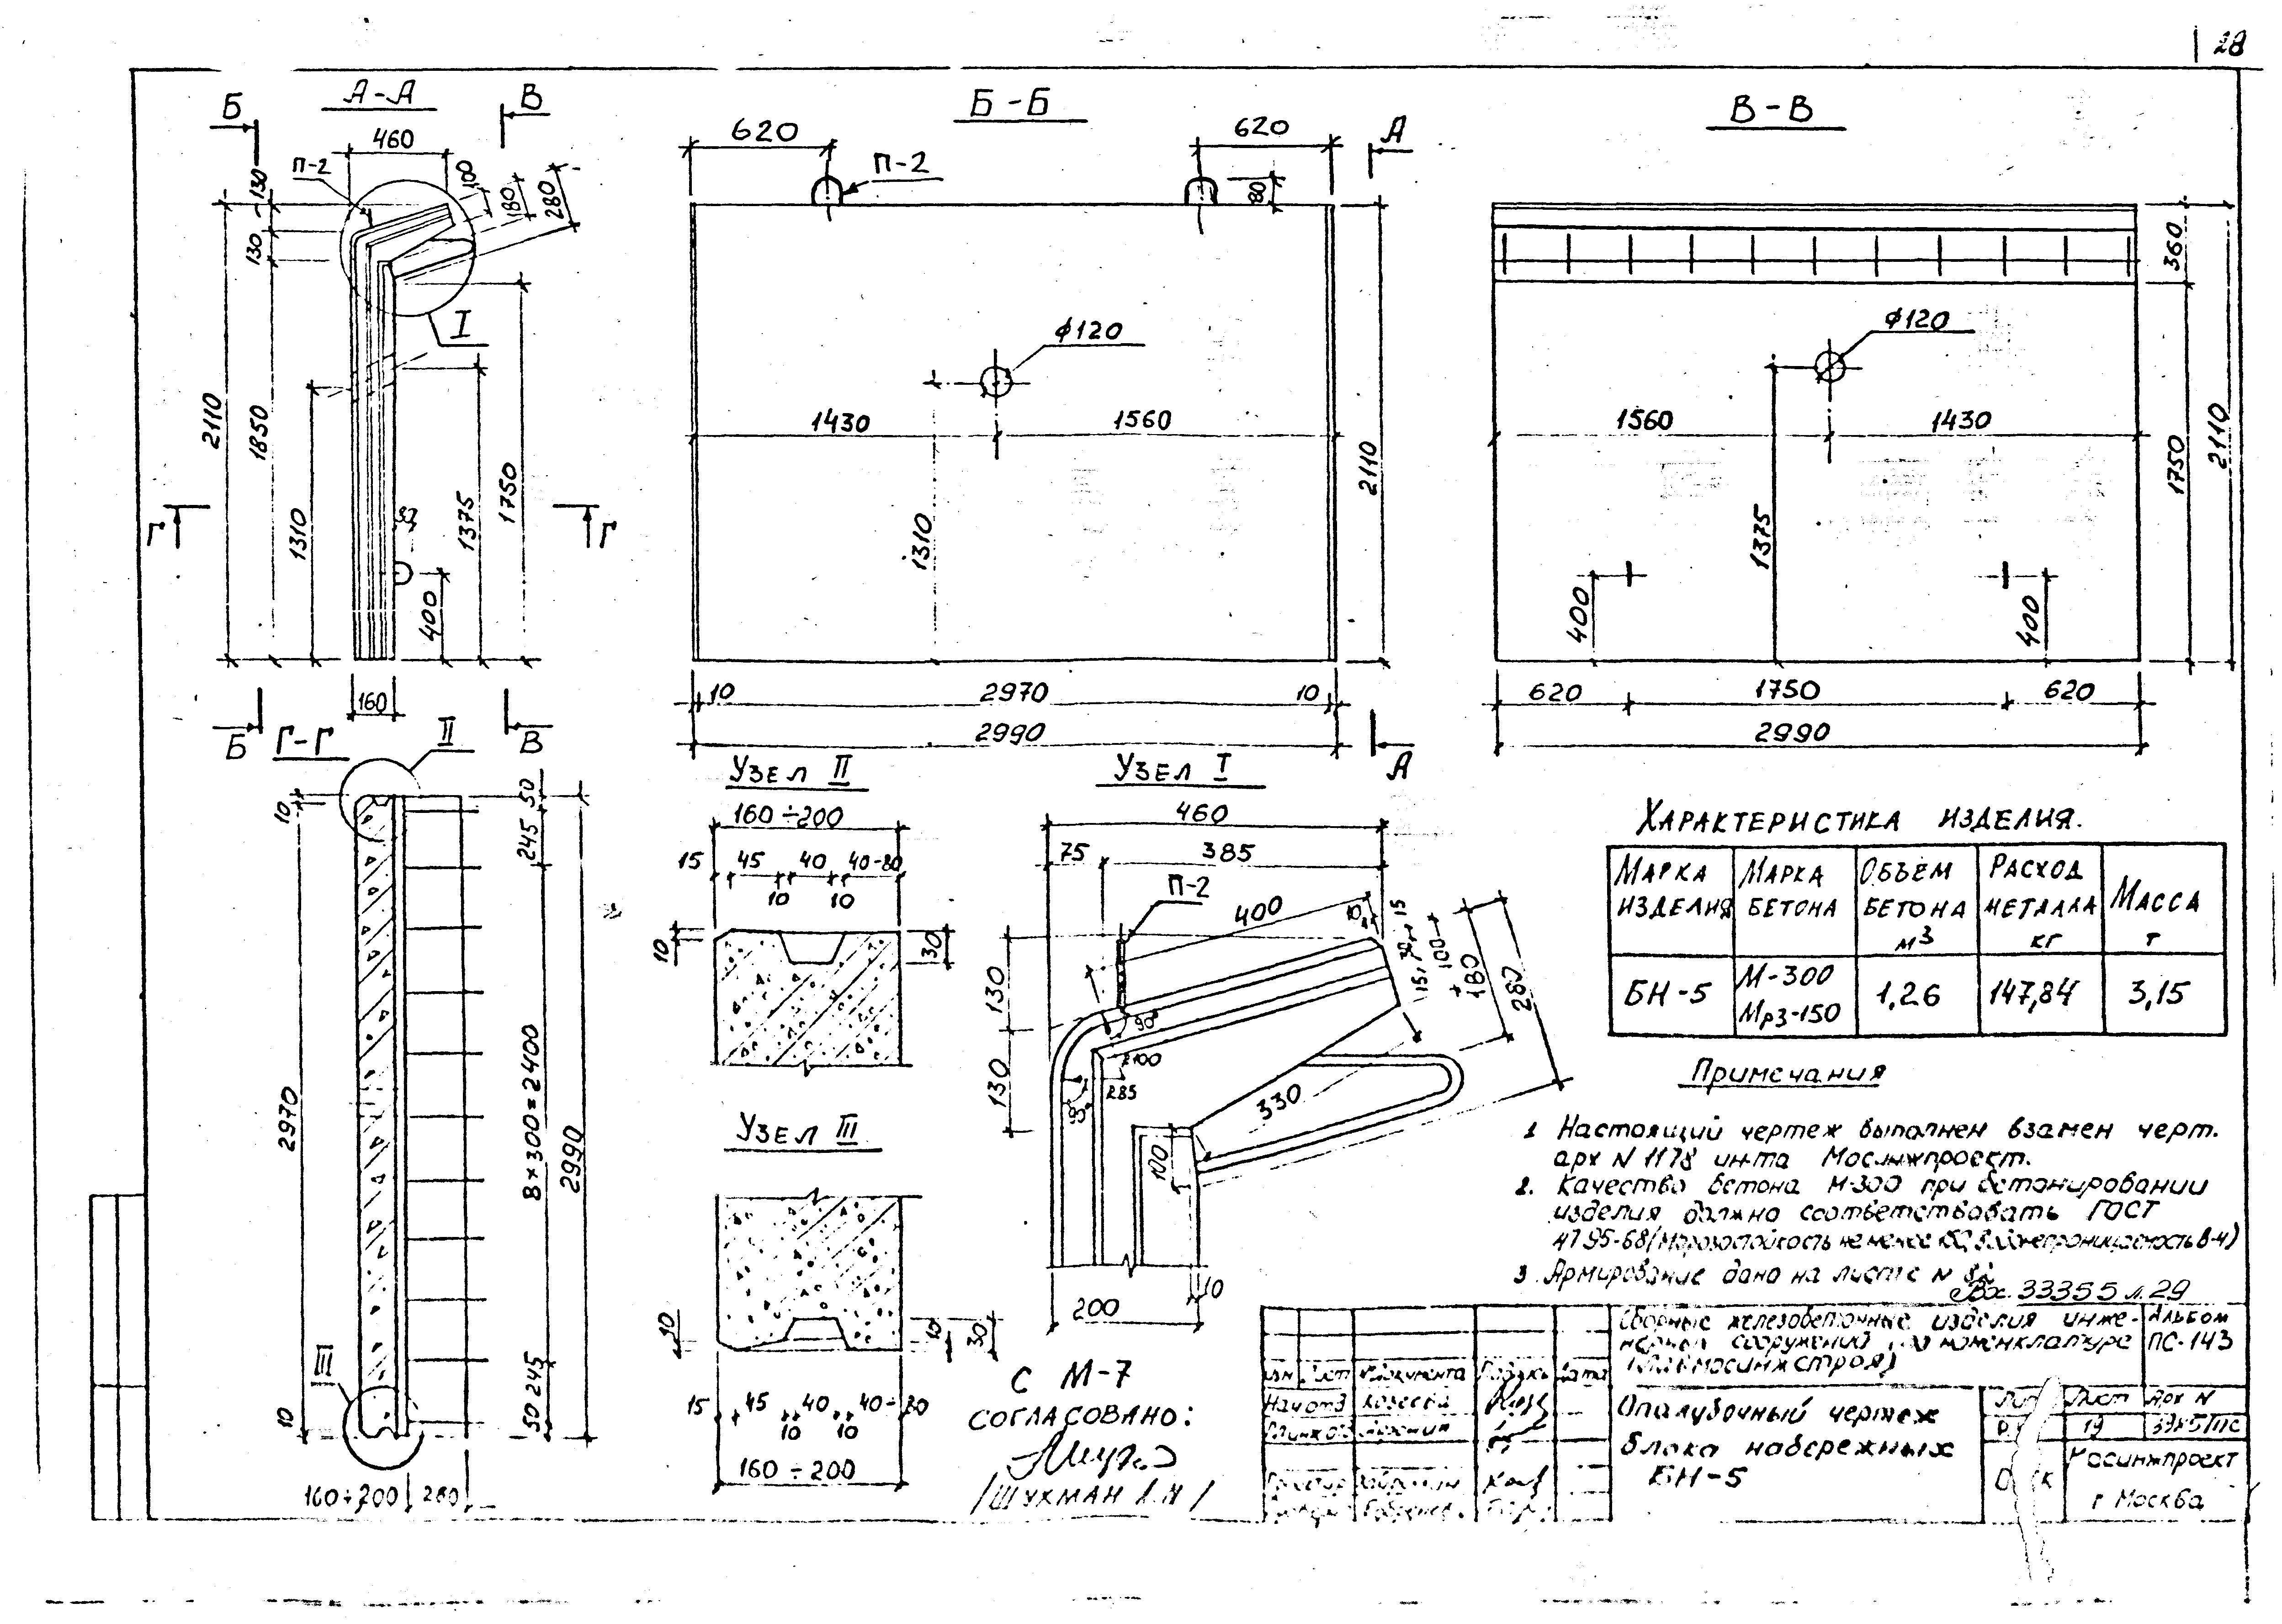 28
А-А
Б
В
460
П-2
130
130
100
180
280
I
2110
1850
1310
1375
1750
400
Г
Г
160
Б
В
Б-Б
620
620
А
П-2
80
ф120
1430
1560
1310
2110
10
2970
10
2990
А
В-В
ф120
360
1560
1430
1750
2110
1375
400
400
620
1750
620
2990
Г-Г
II
10
50
245
2970
8×300=2400
2990
III
10
50 245
160÷200
280
Узел II
160÷200
15
45
40
40-80
10
10
10
30
Узел III
10
30
15
45
40
40-80
10
10
160÷200
Узел I
460
75
385
П-2
400
15
100
180
280
130
130
90°
90°
285
330
100
10
200
Характеристика изделия.
Марка изделия
Марка бетона
Объем бетона м3
Расход металла кг
Масса т
БН-5
М-300
Мрз-150
1,26
147,84
3,15
Примечания
1 Настоящий чертеж выполнен взамен черт.
арх N 1178 ин-та Мосинжпроект.
2. Качество бетона М-300 при бетонировании
изделия должно соответствовать ГОСТ
4795-68 (Морозостойкость не менее водонепроницаемость В-4)
3 Армирование дано на листе N
33355 л. 29
С М-7
согласовано:
/Шухман
Сборные железобетонные изделия инже-
нерных сооружений по номенклатуре
Альбом
ПС-143
Лист N документа Дата
Нач отд
Опалубочный чертеж
блока набережных
БН-5
Лист Арх N
19
Мосинжпроект
г Москва